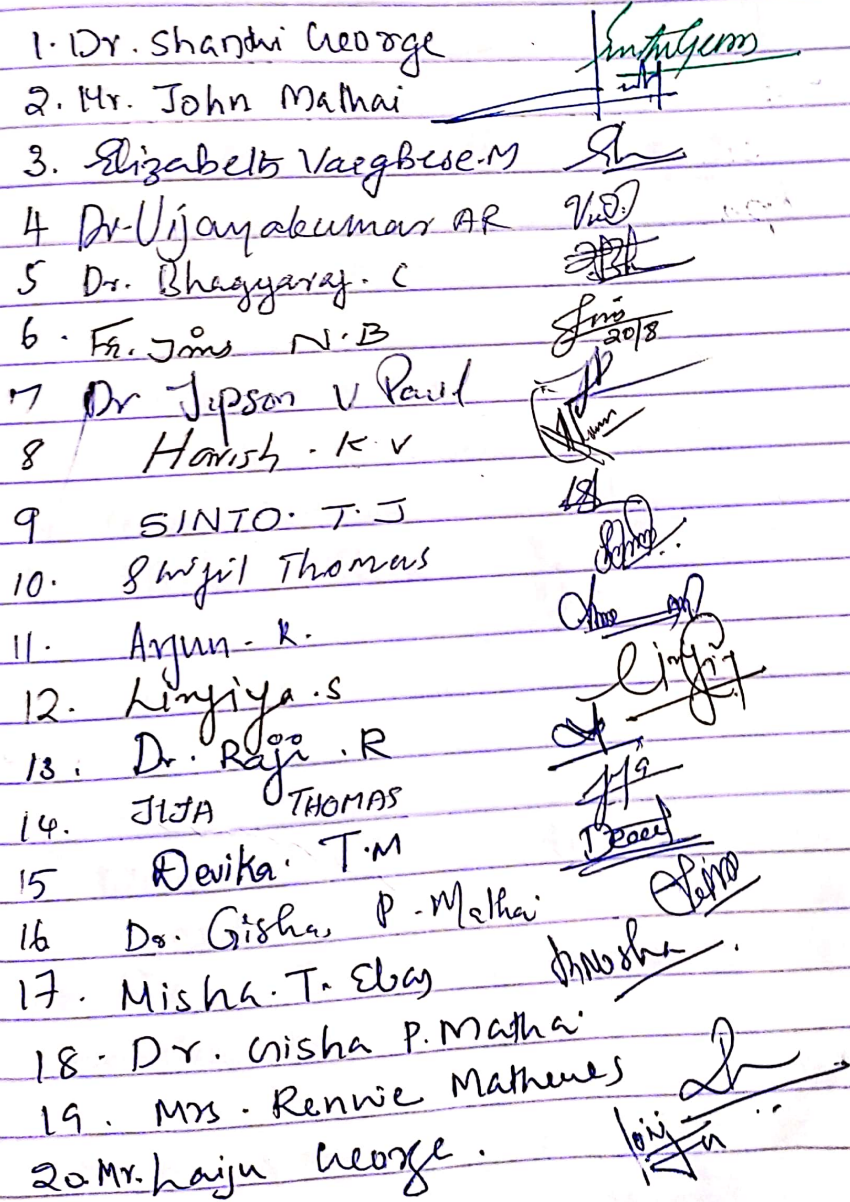 1. Dr. Shanthi George
2. Mr. John Mathai
3. Elizabeth Varghese.M
4 Dr. Vijayakumar AR
5 Dr. Bhagyaraj. C
6. Fr. Jins N.B 20/8
7 Dr Jipson V Paul
8 Harish. K. V
9 SINTO. T. J
10. Shijil Thomas
11. Arjun - K.
12. Linjiya.S Linjiy
13. Dr. Raji . R
14. JIJA THOMAS Jija
15 Devika. T.M
16 Dr. Gisha, P. Mathai
17. Misha. T. Ebay
18. Dr. Gisha P. Mathai
19. Mrs. Rennie Mathews
20. Mr. Laiju George.